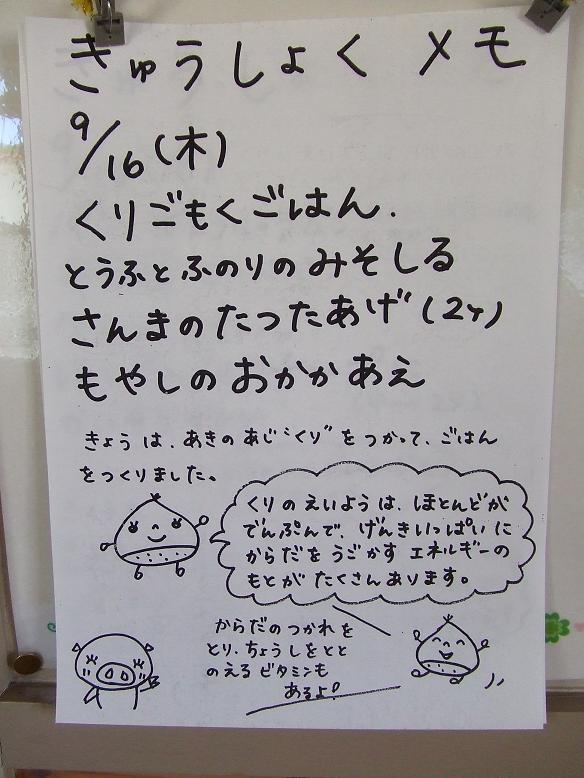 きゅうしょく メモ
9/16(木)
くりごもくごはん.
とうふとふのりのみそしる
さんまのたつたあげ(2ヶ)
もやしのおかかあえ
きょうは、あきのあじ“くり”をつかって、ごはん
をつくりました。
くりのえいようは、ほとんどが
でんぷんで、げんきいっぱいに
からだをうごかすエネルギーの
もとがたくさんあります。
からだのつかれを
とり、ちょうしをとと
のえるビタミンも
あるよ!